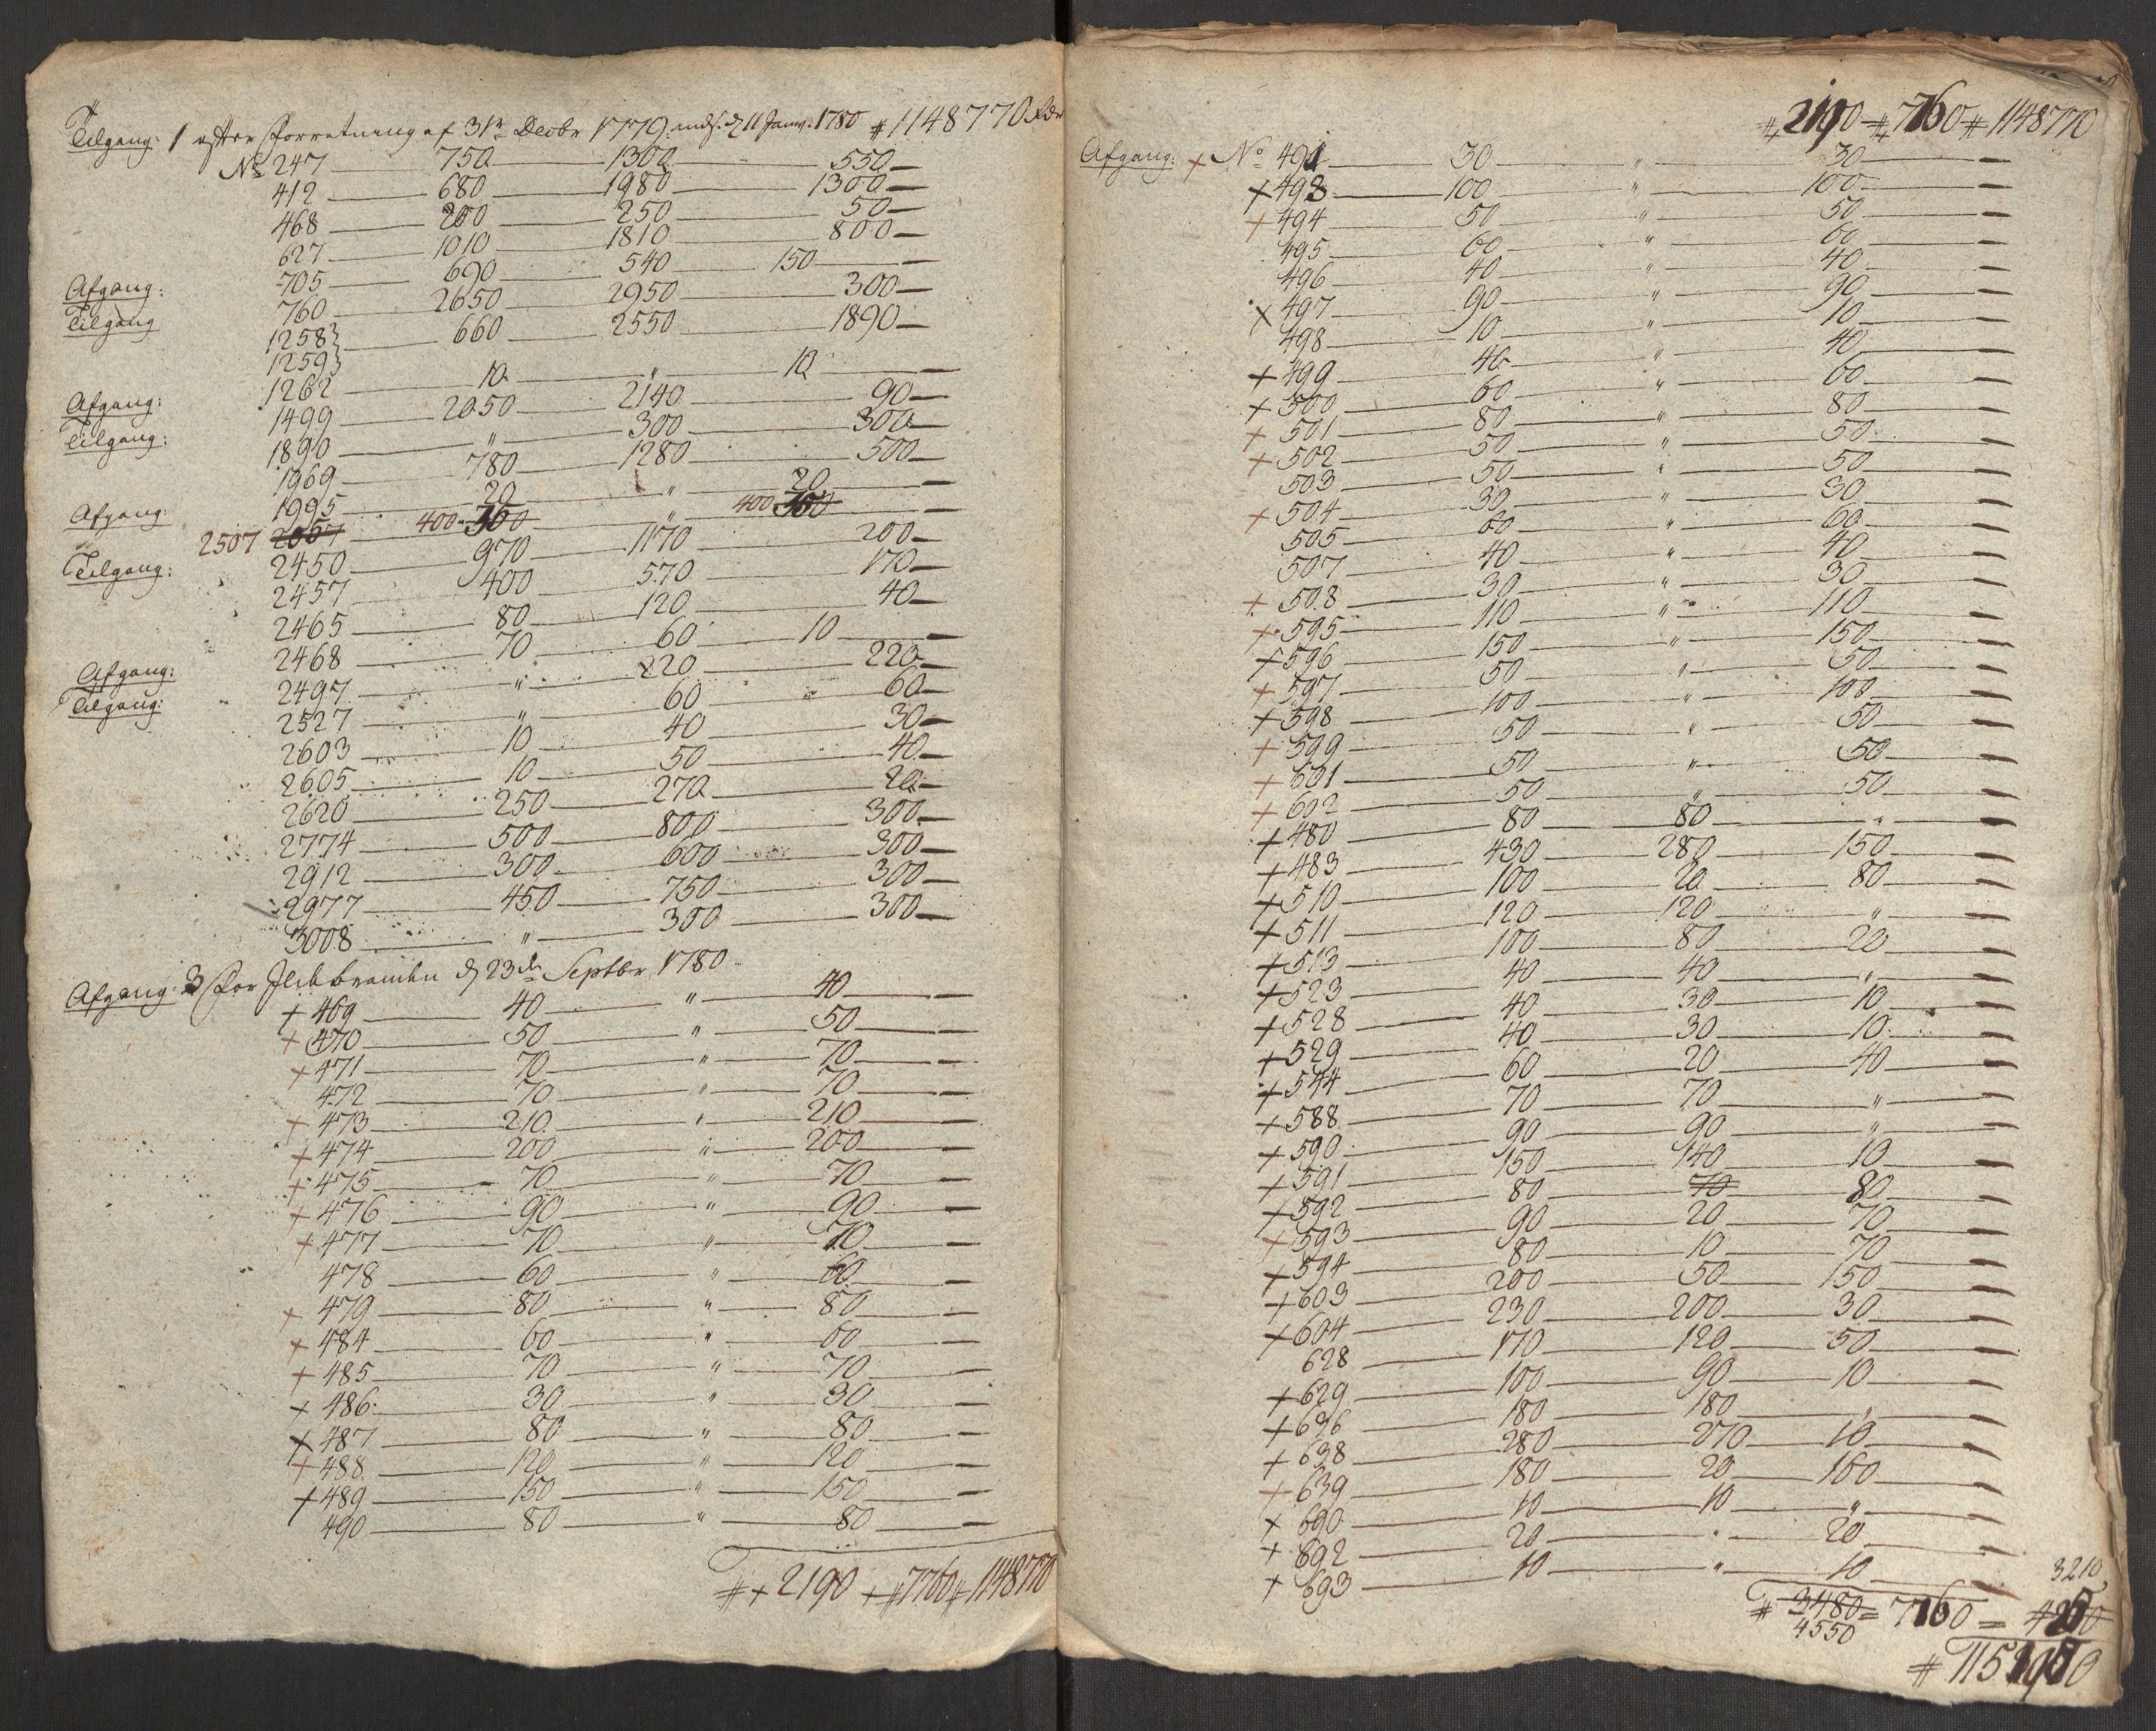 Tilgang: 1 efter Forretning af 31te Decbr 1779. inds. d 11 Janv. 1780 # 1148770 Rdr
No 247 — 750 — 1300 — 550 —
412 — 680 — 1980 — 1300 —
468 — 200 — 250 — 50 —
627 — 1010 — 1810 — 800 —
Afgang: 705 — 690 — 540 — 150 —
Tilgang 760 — 2650 — 2950 — 300 —
1258 } — 660 — 2550 — 1890 —
1259 }
Afgang: 1262 — 10 — " — 10 —
Tilgang: 1499 — 2050 — 2140 — 90 —
1890 — " — 300 — 300 —
1969 — 780 — 1280 — 500 —
Afgang: 1995 — 20 — " — 20 —
2507 2057 — 400 300 — " — 400 300 —
Tilgang: 2450 — 970 — 1170 — 200 —
2457 — 400 — 570 — 170 —
2465 — 80 — 120 — 40 —
Afgang: 2468 — 70 — 60 — 10 —
Tilgang: 2497 — " — 220 — 220 —
2527 — " — 60 — 60 —
2603 — 10 — 40 — 30 —
2605 — 10 — 50 — 40 —
2620 — 250 — 270 — 20 —
2774 — 500 — 800 — 300 —
2912 — 300 — 600 — 300 —
2977 — 450 — 750 — 300 —
3008 — " — 300 — 300 —
Afgang: 3 For Ildebranden d 23de Septbr 1780
+ 469 — 40 — " — 40 —
+ 470 — 50 — " — 50 —
+ 471 — 70 — " — 70 —
472 — 70 — " — 70 —
+ 473 — 210 — " — 210 —
+ 474 — 200 — " — 200 —
+ 475 — 70 — " — 70 —
+ 476 — 90 — " — 90 —
+ 477 — 70 — " — 70 —
478 — 60 — " — 60 —
+ 479 — 80 — " — 80 —
+ 484 — 60 — " — 60 —
+ 485 — 70 — " — 70 —
+ 486 — 30 — " — 30 —
+ 487 — 80 — " — 80 —
+ 488 — 120 — " — 120 —
+ 489 — 150 — " — 150 —
490 — 80 — " — 80 —
# + 2190 + # 7760 # 1148770
# 2190 # 7760 # 1148770
Afgang: + No 491 — 30 — " — 30 —
+ 493 — 100 — " — 100 —
+ 494 — 50 — " — 50 —
495 — 60 — " — 60 —
496 — 40 — " — 40 —
+ 497 — 90 — " — 90 —
498 — 10 — " — 10 —
+ 499 — 40 — " — 40 —
+ 500 — 60 — " — 60 —
+ 501 — 80 — " — 80 —
+ 502 — 50 — " — 50 —
503 — 50 — " — 50 —
+ 504 — 30 — " — 30 —
505 — 60 — " — 60 —
507 — 40 — " — 40 —
+ 508 — 30 — " — 30 —
+ 595 — 110 — " — 110 —
+ 596 — 150 — " — 150 —
+ 597 — 50 — " — 50 —
+ 598 — 100 — " — 100 —
+ 599 — 50 — " — 50 —
+ 601 — 50 — " — 50 —
+ 602 — 50 — " — 50 —
+ 480 — 80 — 80 — " —
+ 483 — 430 — 280 — 150 —
+ 510 — 100 — 20 — 80 —
+ 511 — 120 — 120 — " —
+ 513 — 100 — 80 — 20 —
+ 523 — 40 — 40 — " —
+ 528 — 40 — 30 — 10 —
+ 529 — 40 — 30 — 10 —
+ 544 — 60 — 20 — 40 —
+ 588 — 70 — 70 — " —
+ 590 — 90 — 90 — " —
+ 591 — 150 — 140 — 10 —
+ 592 — 80 — 70 — 80 —
+ 593 — 90 — 20 — 70 —
+ 594 — 80 — 10 — 70 —
+ 603 — 200 — 50 — 150 —
+ 604 — 230 — 200 — 30 —
628 — 170 — 120 — 50 —
+ 629 — 100 — 90 — 10 —
+ 636 — 180 — 180 — " —
+ 638 — 280 — 270 — 10 —
+ 639 — 180 — 20 — 160 —
+ 690 — 10 — 10 — " —
+ 692 — 20 — " — 20 —
+ 693 — 10 — " — 10 —
3210
# 3480 = 7760 =
4550